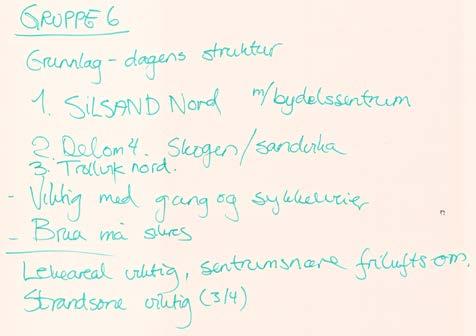 GRUPPE 6
Grunnlag - dagens struktur
1. SILSAND Nord m/bydelssentrum
2. Delom 4. Skogen/sandvika
3. Trollvik nord.
- Viktig med gang og sykkelveier
- Brua må sikres
Lekeareal viktig, sentrumsnære frilufts om.
Strandsone viktig (3/4)